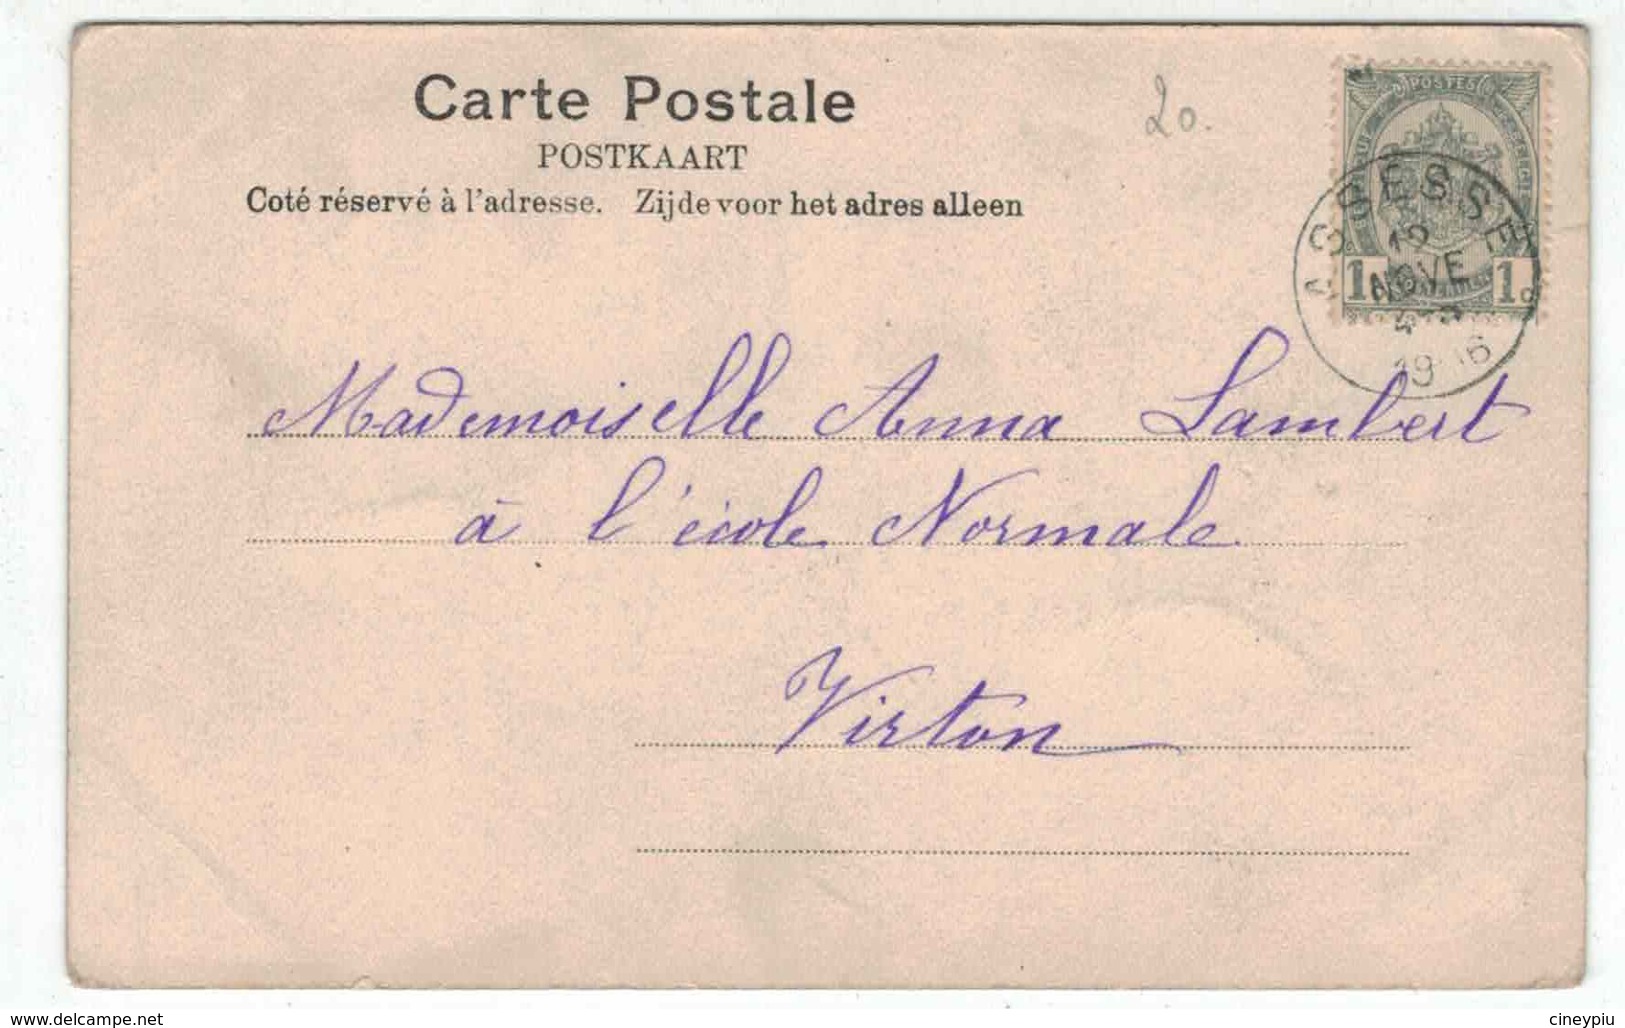 Carte Postale
POSTKAART
Coté réservé à l'adresse. Zijde voor het adres alleen
20.
POSTES
1 1c
ASSESSE
12
NOVE
19 06
Mademoiselle Anna Lambert
à l'école Normale
Virton
www.delcampe.net
cineypiu